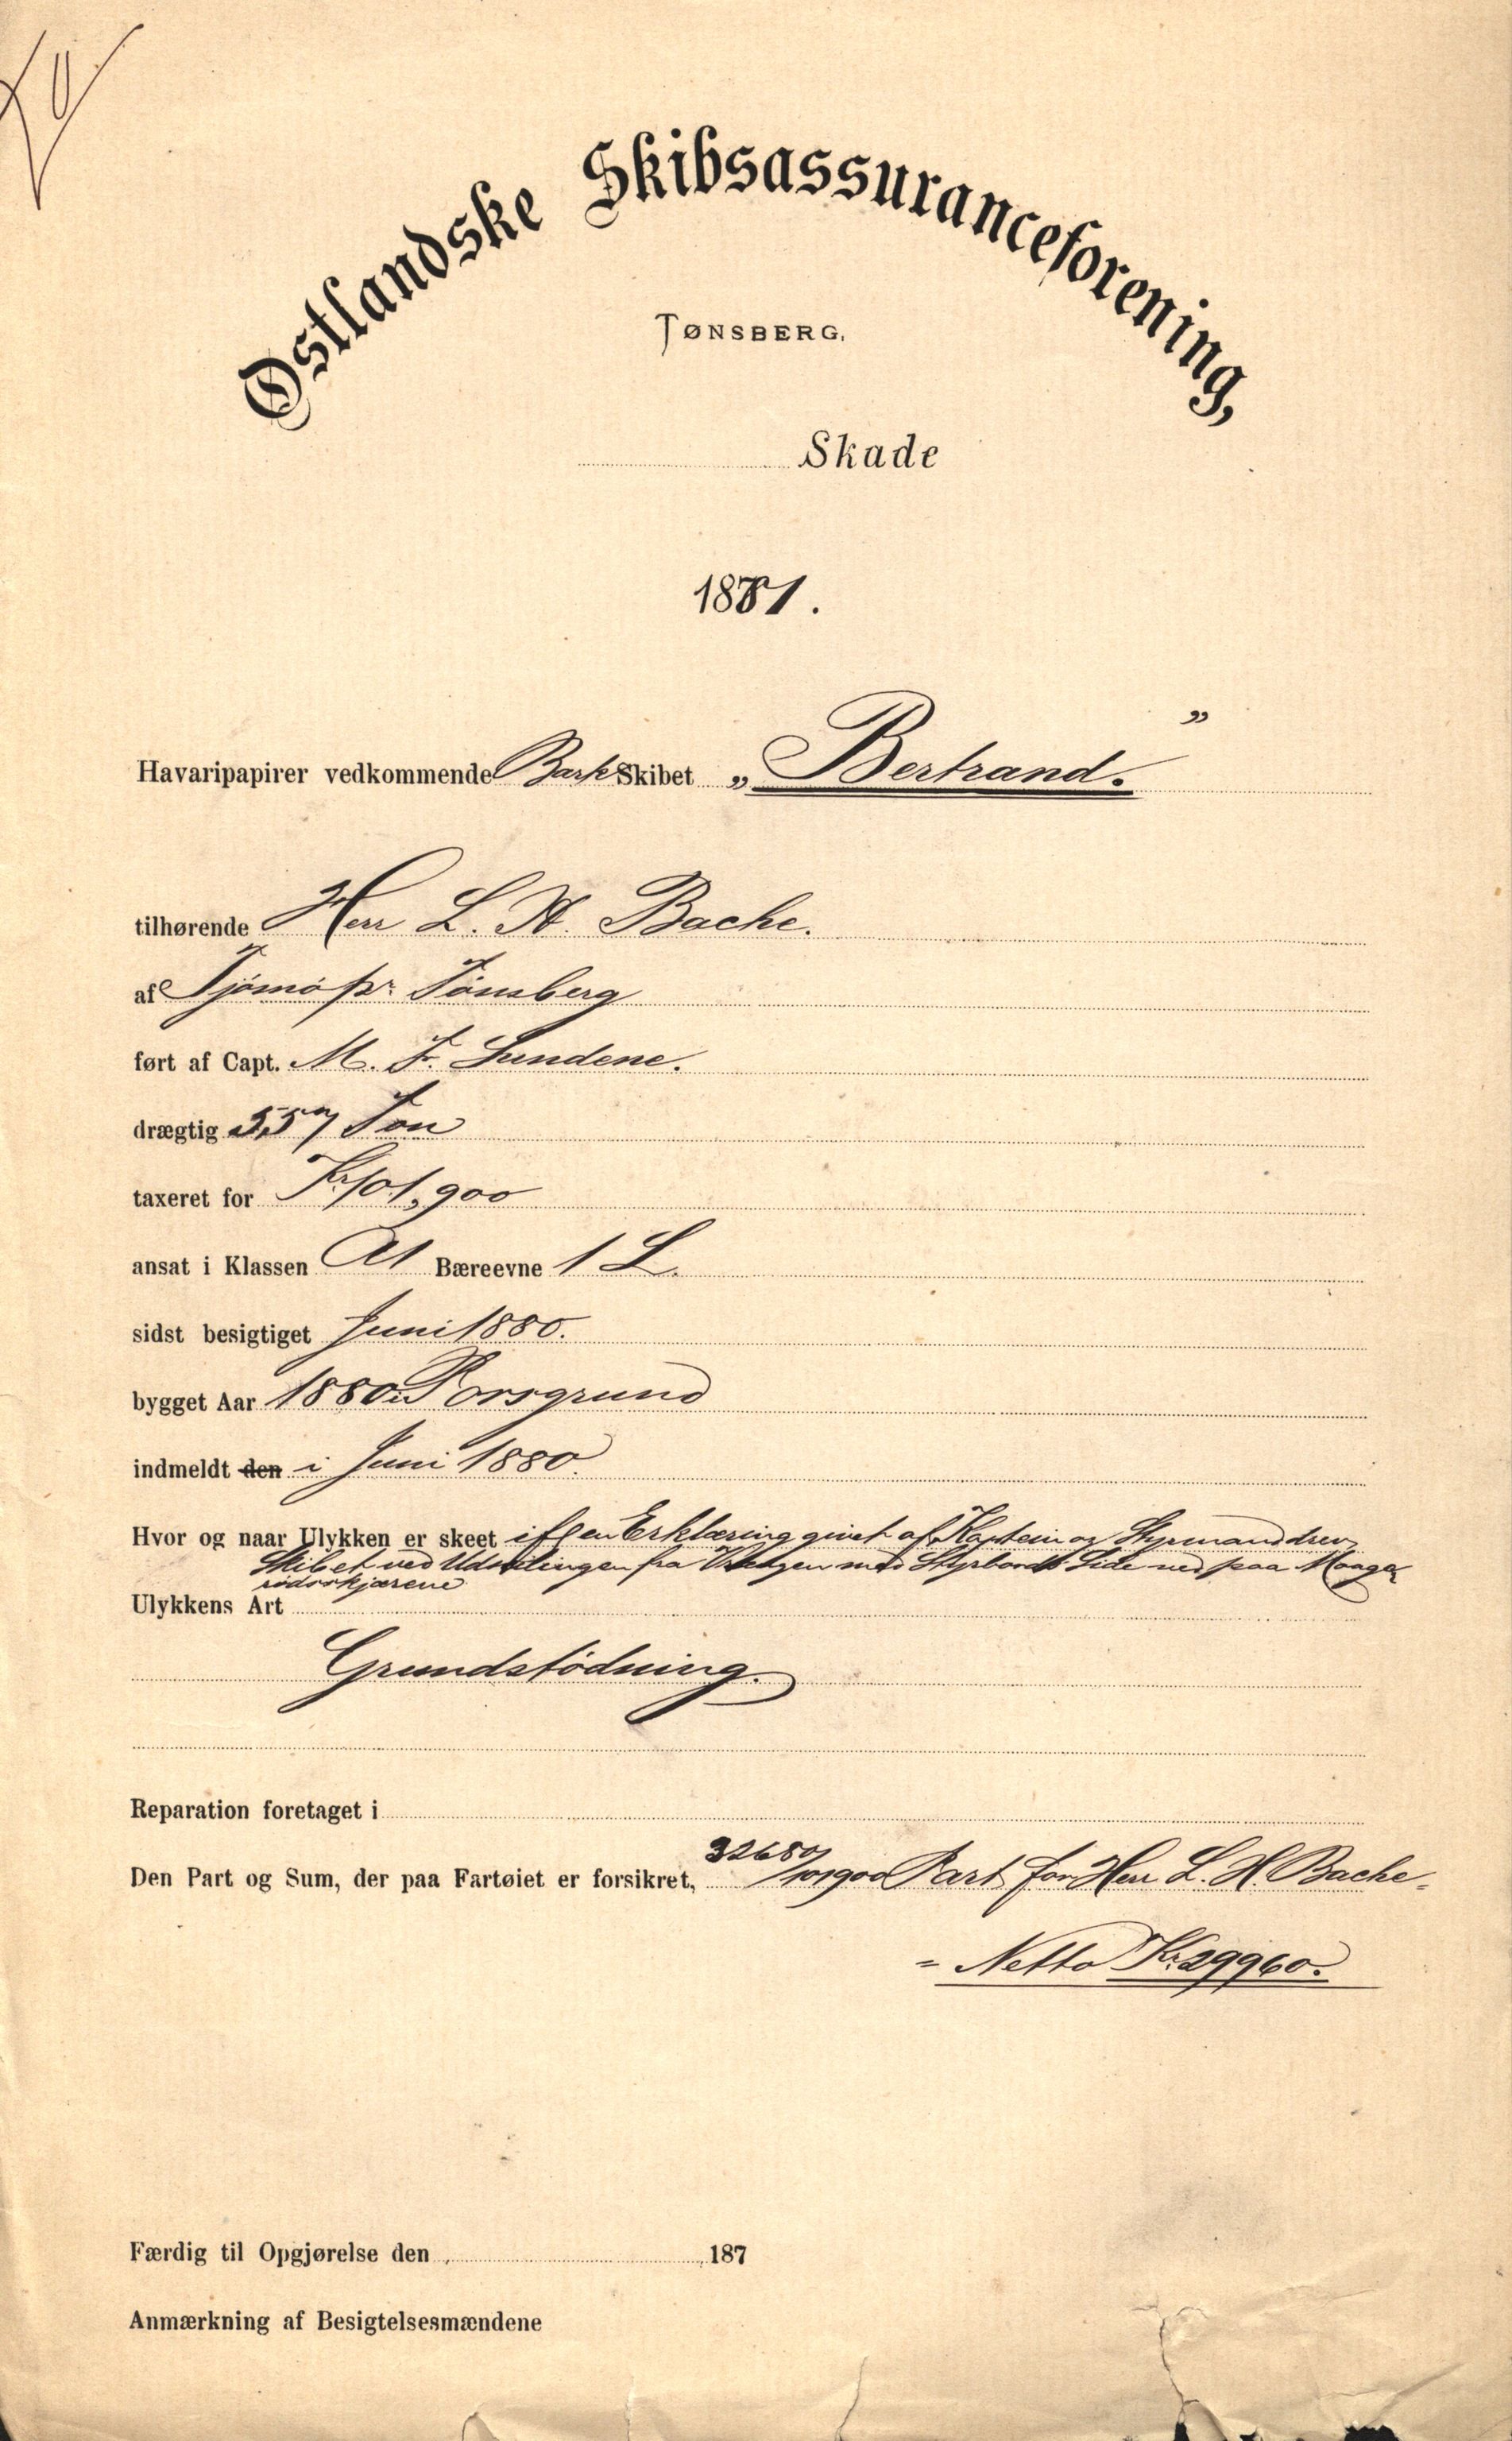 Østlandske Skibsassuranceforening,
TØNSBERG.
Skade
1881.
Havaripapirer vedkommende Bark Skibet „Bertrand."
tilhørende Herr L. H. Bache.
af Tjømø pr. Tønsberg
ført af Capt. M. F. Sundene.
drægtig 557 Ton
taxeret for Kr 101,900
ansat i Klassen A1 Bæreevne 1 L.
sidst besigtiget Juni 1880.
bygget Aar 1880 i Porsgrund
indmeldt den i Juni 1880.
Hvor og naar Ulykken er skeet ifl en Erklæring givet af Kaptein og Styrmand drev
Skibet ved Udseilingen fra Vrengen med Styrbords Side ned paa Maage
rødsskjærene
Ulykkens Art
Grundstödning.
Reparation foretaget i
Den Part og Sum, der paa Fartøiet er forsikret, 32680/101900 Part for Herr L. H. Bache.
= Netto Kr. 29960.
Færdig til Opgjørelse den 187
Anmærkning af Besigtelsesmændene